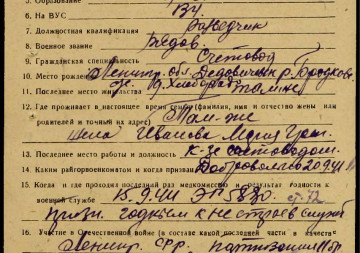 5. Образование
6. На ВУС 134
7. Должностная квалификация разведчик
8. Военное звание рядов
9. Гражданская специальность Счетовод
10. Место рождения Ленингр. обл. Дедовичи р.
11. Последнее место жительства Там же
12. Где проживает в настоящее время семья (фамилия, имя и отчество жены или
родителей и точный их адрес) Там-же
жена Иванова Мария
13. Последнее место работы и должность К-з счетоводом
14. Каким райгорвоенкоматом и когда призван Добровольно 20.9.41
15. Когда и где проходил последний раз медкомиссию и результат годности к
военной службе 13.9.41 ЭГ 5830 ст. 72
призн. годным к нестроев службе
16. Участие в Отечественной войне (в составе какой последней части и в качестве
Ленингр. фр. партизан